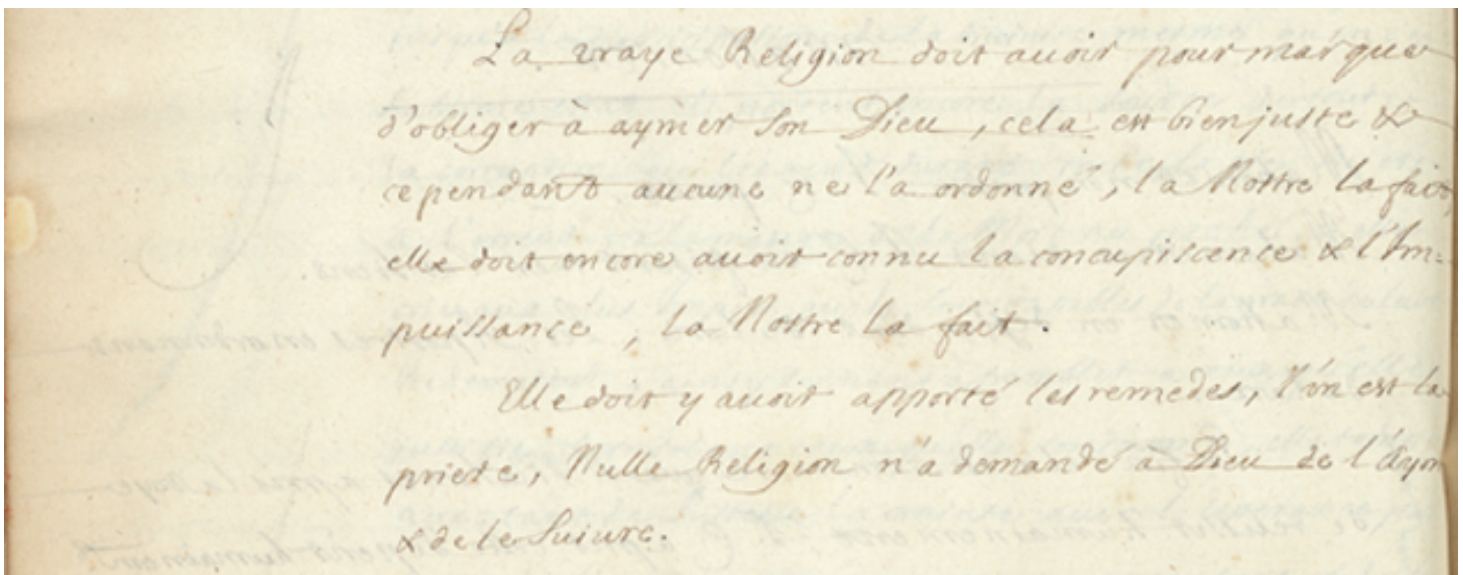 La vraye Religion doit auoir pour marque
d'obliger à aymer son Dieu, cela est bien juste &
cependant aucune ne l'a ordonné, la Nostre la fait,
elle doit encore auoir connu la concupiscence & l'Im=
puissance, la Nostre la fait.
Elle doit y auoir apporté les remedes, l'un est la
priere, Nulle Religion n'a demandé à Dieu de l'Aym
& de le Suiure.